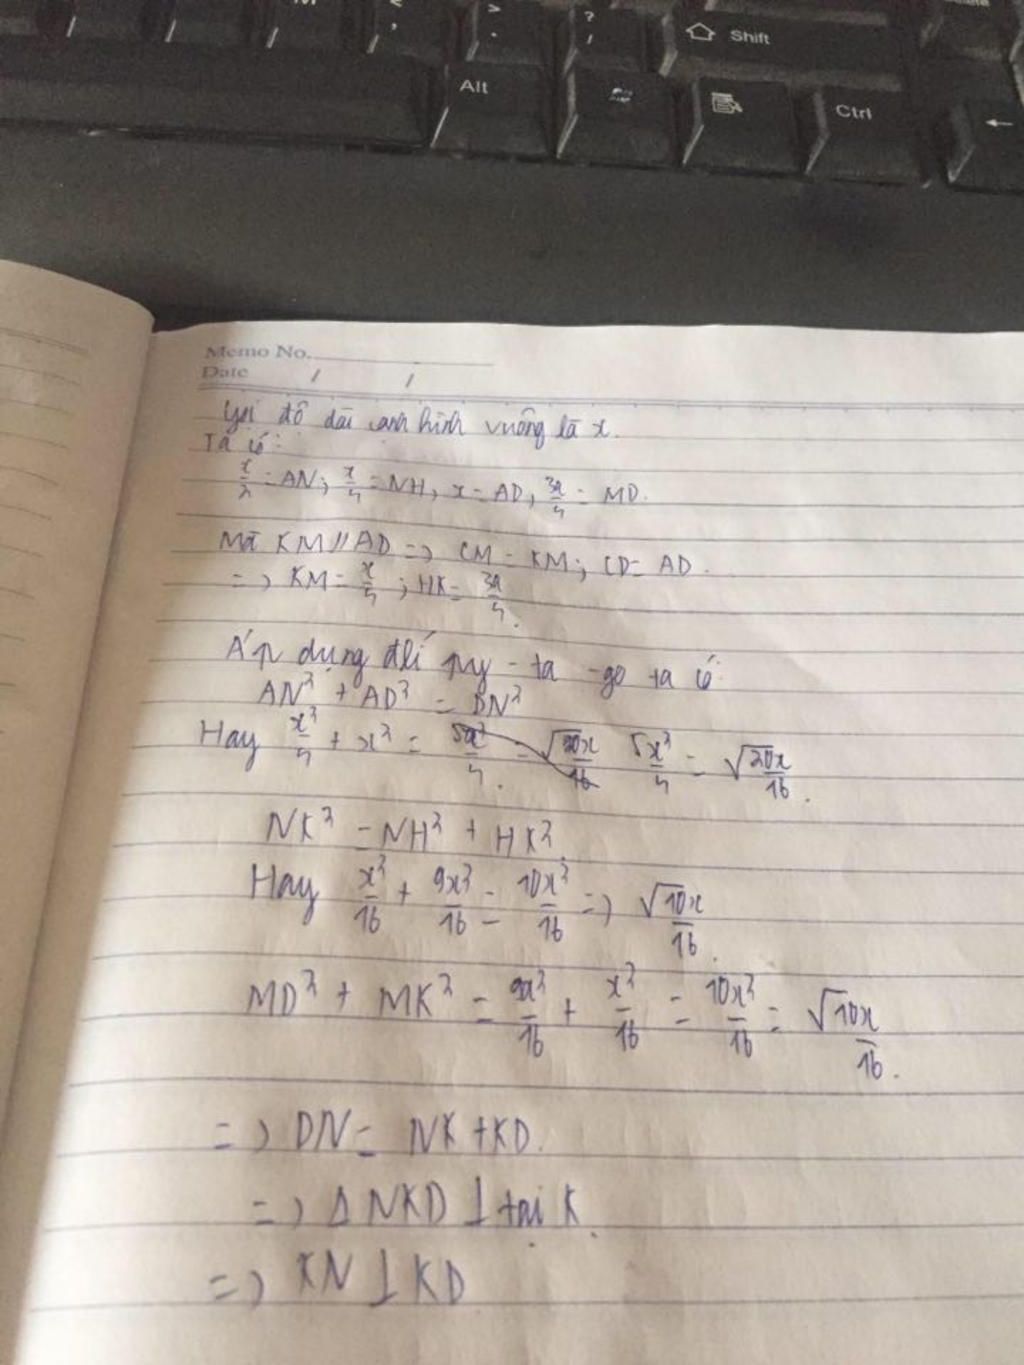 Alt
Shift
Ctrl
Memo No.
Date / /
Gọi độ dài cạnh hình vuông là x.
Ta có:
x/2 = AN; x/4 = NH, x = AD, 3x/4 = MD.
Mà KM // AD => CM = KM; CD = AD.
=> KM = x/4; HK = 3x/4.
Áp dụng đlí py-ta-go ta có:
AN² + AD² = DN²
Hay x²/4 + x² = 5x²/4 = √20x/16 5x²/4 = √20x/16.
NK² = NH² + HK².
Hay x²/16 + 9x²/16 = 10x²/16 => √10x/16.
MD² + MK² = 9x²/16 + x²/16 = 10x²/16 = √10x/16.
=> DN = NK + KD.
=> Δ NKD ⊥ tại K.
=> KN ⊥ KD